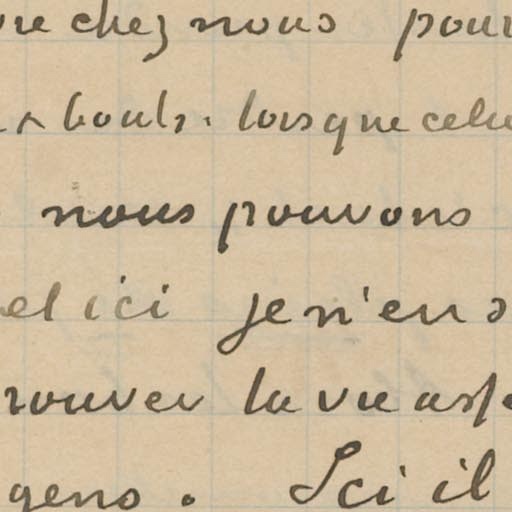 chez nous pour
bouts. lorsque celu
nous pouvons
et ici je n'en s
rouver la vie ass
gens. Ici il